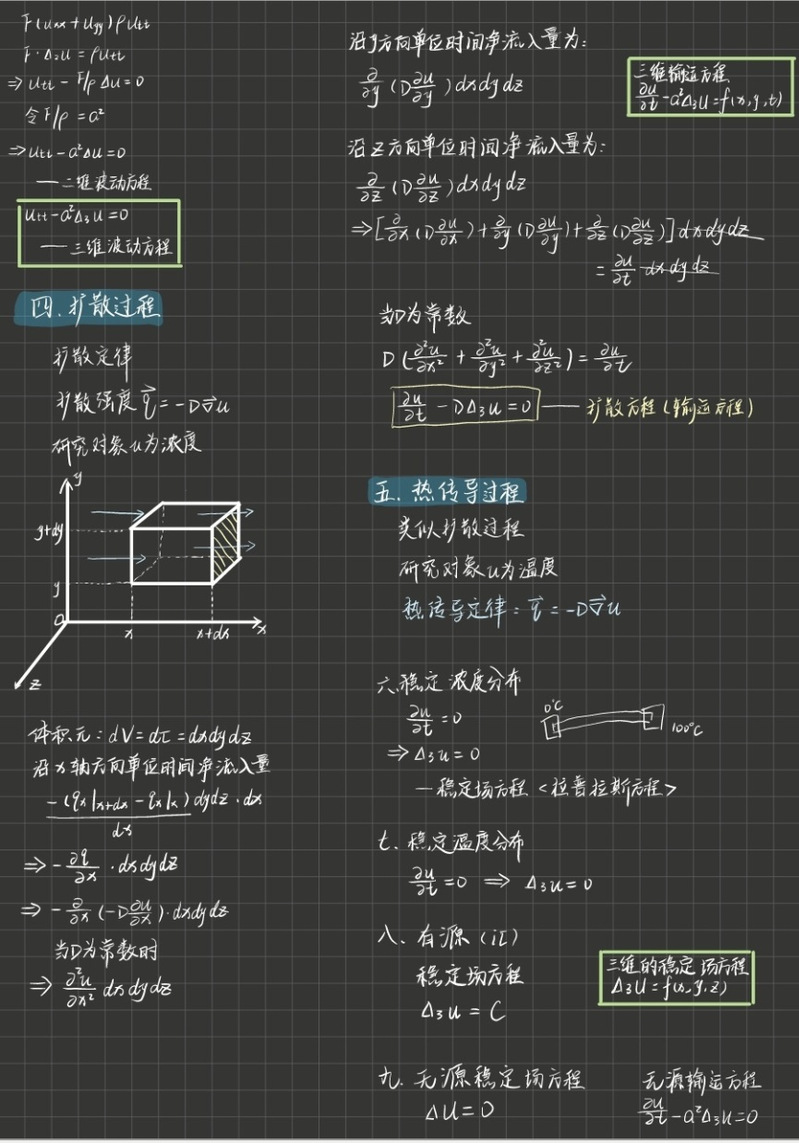 F(uxx+uyy)ρutt
F·Δ₂u=ρutt
⇒utt-F/ρ Δu=0
令F/ρ=a²
⇒utt-a²Δu=0
——二维波动方程
utt-a²Δ₃u=0
——三维波动方程
四.扩散过程
扩散定律
扩散强度 q⃗=-D∇⃗u
研究对象u为浓度
y
y+dy
y
O
x
x+dx
x
z
体积元:dV=dτ=dxdydz
沿x轴方向单位时间净流入量
-(qx|x+dx-qx|x)dydz·dx
dx
⇒-∂q/∂x·dxdydz
⇒-∂/∂x(-D∂u/∂x)·dxdydz
当D为常数时
⇒∂²u/∂x² dxdydz
沿y方向单位时间净流入量为:
∂/∂y(D∂u/∂y)dxdydz
三维输运方程
∂u/∂t-a²Δ₃u=f(x,y,t)
沿z方向单位时间净流入量为:
∂/∂z(D∂u/∂z)dxdydz
⇒[∂/∂x(D∂u/∂x)+∂/∂y(D∂u/∂y)+∂/∂z(D∂u/∂z)]dxdydz
=∂u/∂t dxdydz
当D为常数
D(∂²u/∂x²+∂²u/∂y²+∂²u/∂z²)=∂u/∂t
∂u/∂t-DΔ₃u=0——扩散方程(输运方程)
五.热传导过程
类似扩散过程
研究对象u为温度
热传导定律:q⃗=-D∇⃗u
六.稳定浓度分布
∂u/∂t=0
0℃
100℃
⇒Δ₃u=0
—稳定场方程<拉普拉斯方程>
七、稳定温度分布
∂u/∂t=0 ⇒ Δ₃u=0
八、有源(汇)
稳定场方程
Δ₃u=C
三维的稳定场方程
Δ₃u=f(x,y,z)
九.无源稳定场方程
ΔU=0
无源输运方程
∂u/∂t-a²Δ₃u=0